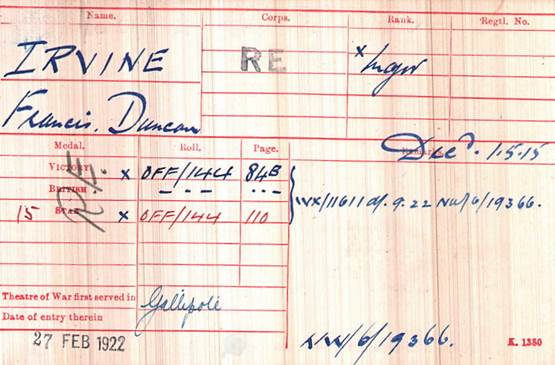 Name. Corps. Rank. Regtl. No.
IRVINE RE x Major
Francis. Duncan
Decd. 1.5.15
Medal. Roll. Page.
Victory x OFF/144 84B
British - . - . - ...
15 Star x OFF/144 110
R.E.
NW/6/19366.
Theatre of War first served in Gallipoli
Date of entry therein
27 FEB 1922
NW/6/19366. K. 1380